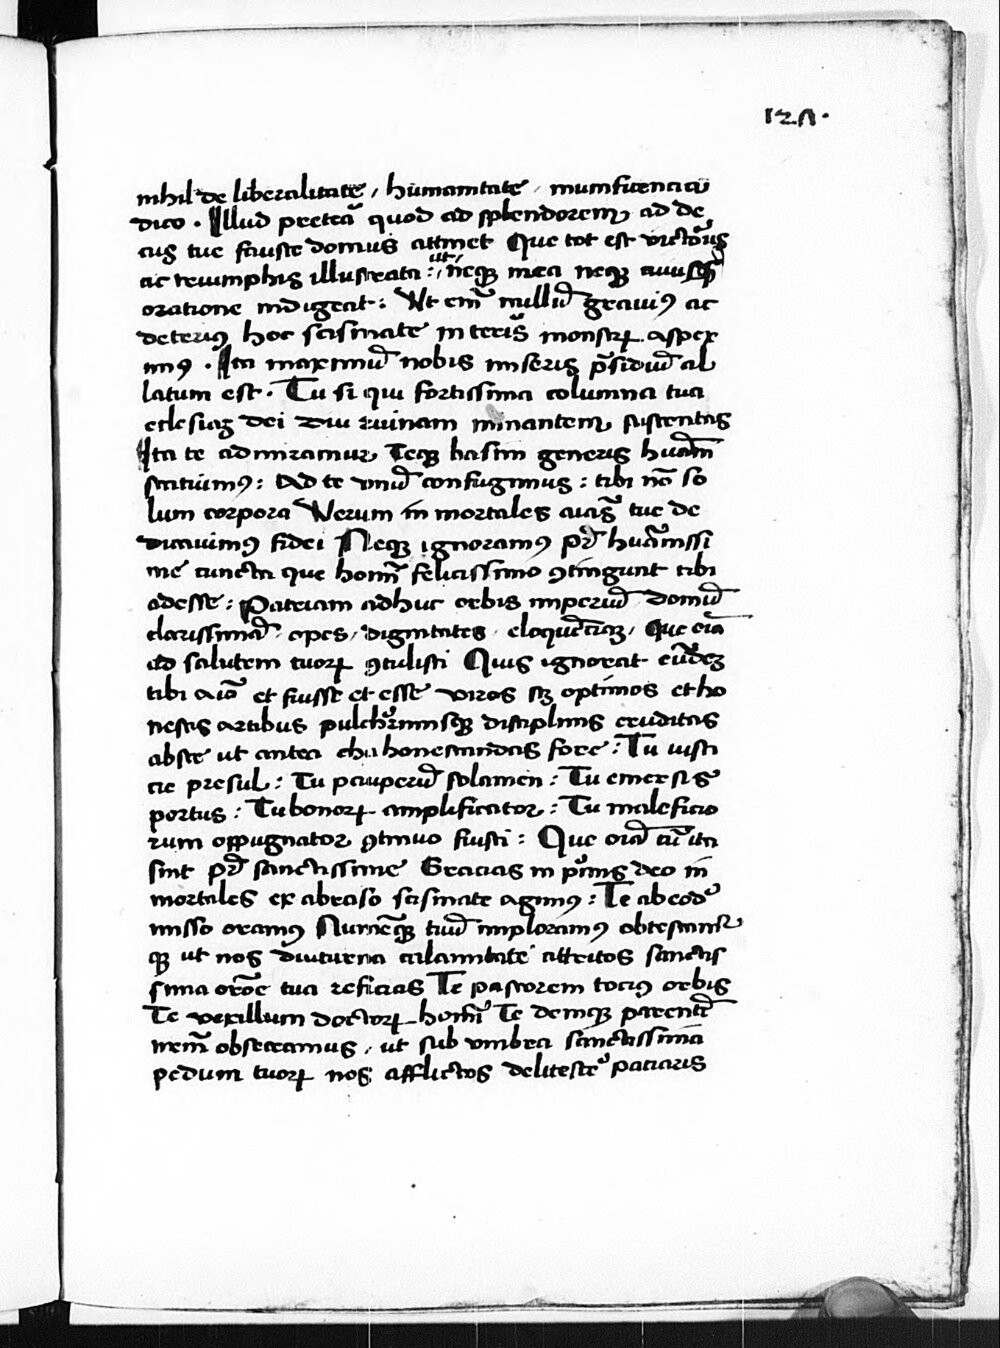 127.
nihil de liberalitate / humanitate / munificencia
dico . Illud pretea quod ad splendorem ad de
cus tue fauste domus attinet Que tot est victoriis
ac triumphis illustrata : ut neq mea neq cuiusq
oratione indigeat : Ut em nullu graui9 ac
deteri9 hoc scismate in terris monstr aspex
im9 . Ita maximu nobis miseris psidiu al
latum est . Tu si qui fortissima columna tua
eclesias dei diu ruinam minantem sustentas
Ita te admiramur Teq basim generis human
statuim9 : Ad te vnu confugimus : tibi no so
lum corpora Verum in mortales aias tue de
dicauim9 fidei Neq ignoram9 pr huanissi
me cuncta que homi felicissimo 9tingunt tibi
adesse : Patriam adhuc orbis imperiu domu
clarissima / opes / dignitates / eloquecia / Que oia
ad salutem tuor 9tulisti Quis ignorat eude
tibi aio et fuisse et esse viros sz optimos et ho
nestis artibus pulcherrimisq disciplinis eruditos
abste ut antea honestandos fore : Tu iusti
cie presul : Tu pauperu solamen : Tu emersis
portus : Tu bonor amplificator : Tu maleficio
rum oppugnator 9tinuo fuisti : Que oia cu ita
sint pr sanctissime Gracias in pimis deo in
mortales ex abraso scismate agim9 : Te ab eod
misso oram9 Numeq tuu imploram9 obtestam
q ut nos diuturna calamitate attritos sanctis
sima oroe tua reficias Te pastorem toci9 orbis
Te vexillum doctor homi Te deniq parente
nem obsecramus / ut sub vmbra sanctissima
pedum tuor nos afflictos delitesce paciaris